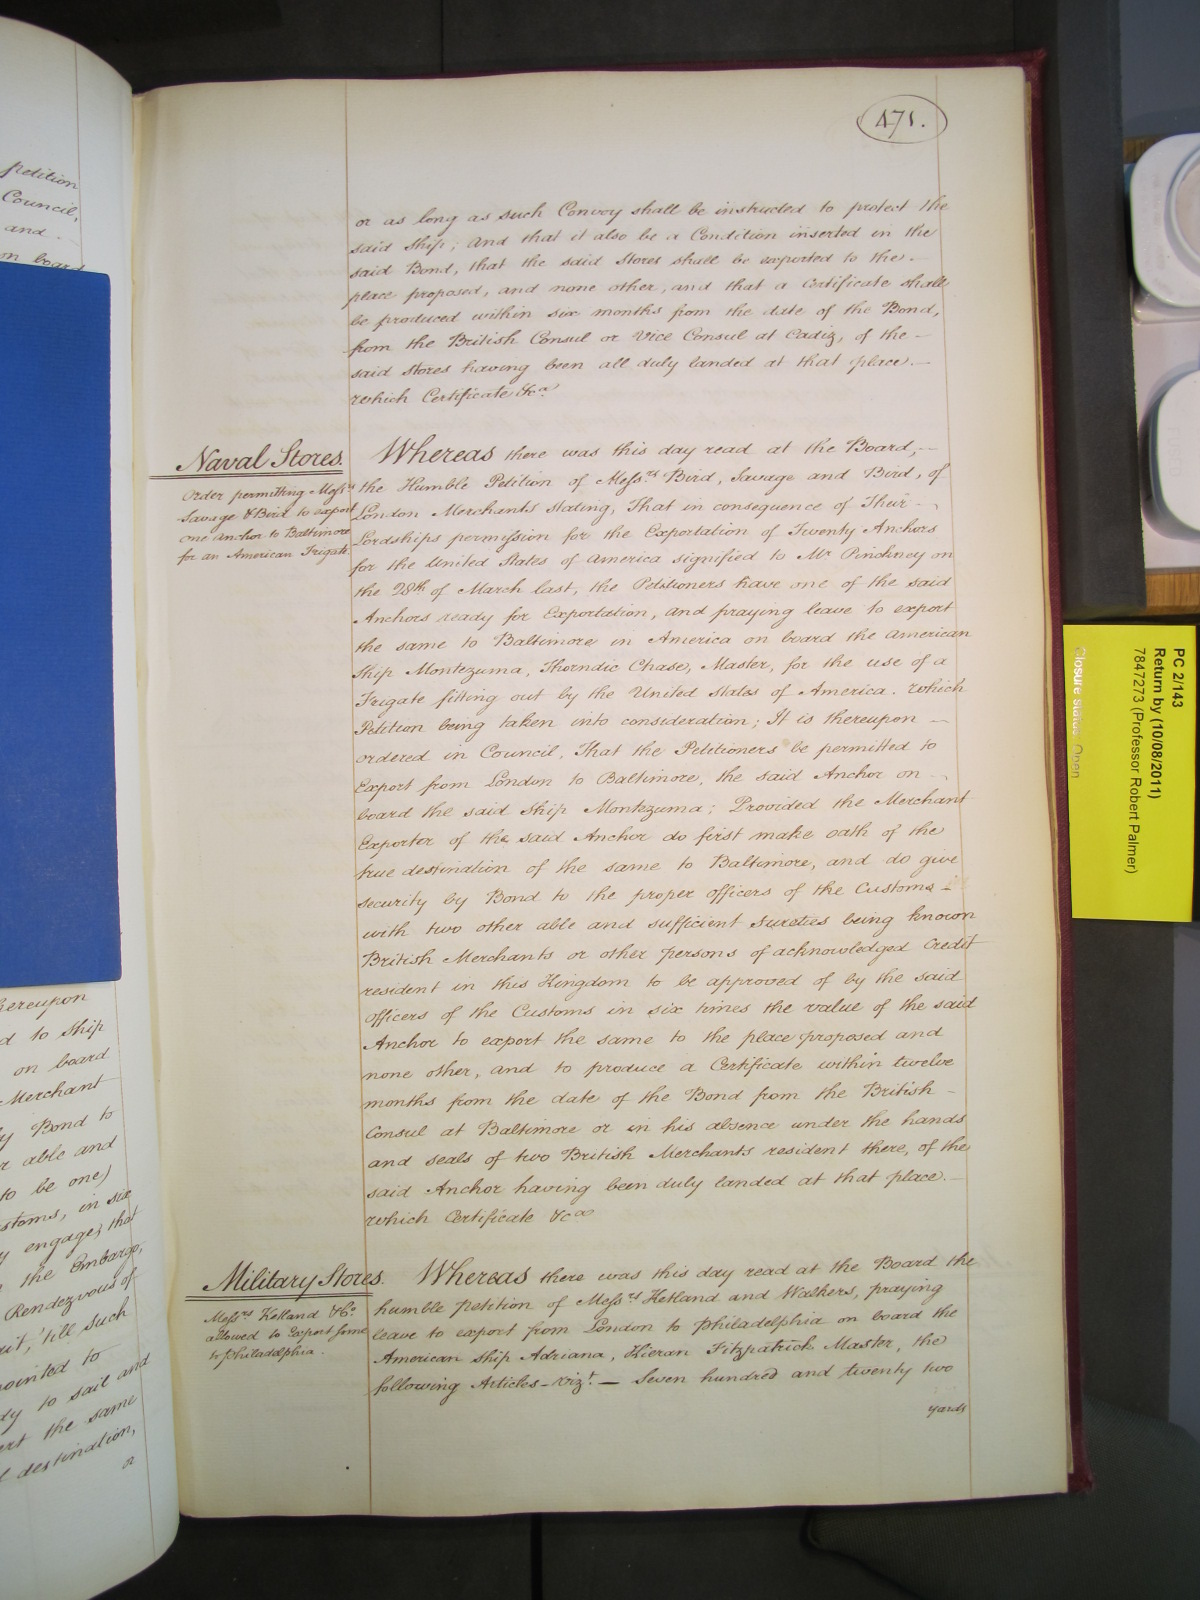 petition
Council,
and
on board
hereupon
d to Ship
on board
Merchant
y Bond to
r able and
to be one)
stoms, in six
y engage, that
the Embargo,
Rendezvous of
it, 'till such
pointed to
dy to sail and
ert the same
l destination,
or
471.
or as long as such Convoy shall be instructed to protect the
said Ship; And that it also be a Condition inserted in the
said Bond, that the said Stores shall be exported to the
place proposed, and none other, and that a Certificate shall
be produced within six months from the date of the Bond,
from the British Consul or Vice Consul at Cadiz, of the
said Stores having been all duly landed at that place.
which Certificate &ca.
Naval Stores.
Order permitting Messrs
Savage & Bird to export
one Anchor to Baltimore
for an American Frigate
Whereas there was this day read at the Board,
the Humble Petition of Messrs Bird, Savage and Bird, of
London Merchants stating, That in consequence of Their
Lordships permission for the Exportation of Twenty Anchors
for the United States of America signified to Mr Pinckney on
the 28th of March last, the Petitioners have one of the said
Anchors ready for Exportation, and praying leave to export
the same to Baltimore in America on board the American
Ship Montezuma, Thorndic Chase, Master, for the use of a
Frigate fitting out by the United States of America. Which
Petition being taken into consideration; It is thereupon
ordered in Council, That the Petitioners be permitted to
Export from London to Baltimore, the said Anchor on
board the said Ship Montezuma; Provided the Merchant
Exporter of the said Anchor do first make oath of the
true destination of the same to Baltimore, and do give
security by Bond to the proper Officers of the Customs
with two other able and sufficient Sureties being known
British Merchants or other persons of acknowledged Credit
resident in this Kingdom to be approved of by the said
Officers of the Customs in six times the value of the said
Anchor to export the same to the place proposed and
none other, and to produce a Certificate within twelve
months from the date of the Bond from the British
Consul at Baltimore or in his absence under the hands
and seals of two British Merchants resident there, of the
said Anchor having been duly landed at that place.
which Certificate &ca
Military Stores.
Messrs Ketland & Co.
allowed to Export some
to Philadelphia.
Whereas there was this day read at the Board the
humble petition of Messrs Ketland and Walkers, praying
leave to export from London to Philadelphia on board the
American Ship Adriana, Kieran Fitzpatrick Master, the
following Articles - Vizt. — Seven hundred and twenty two
yards
PC 2/143
Return by (10/08/2011)
7847273 (Professor Robert Palmer)
Closure status: Open